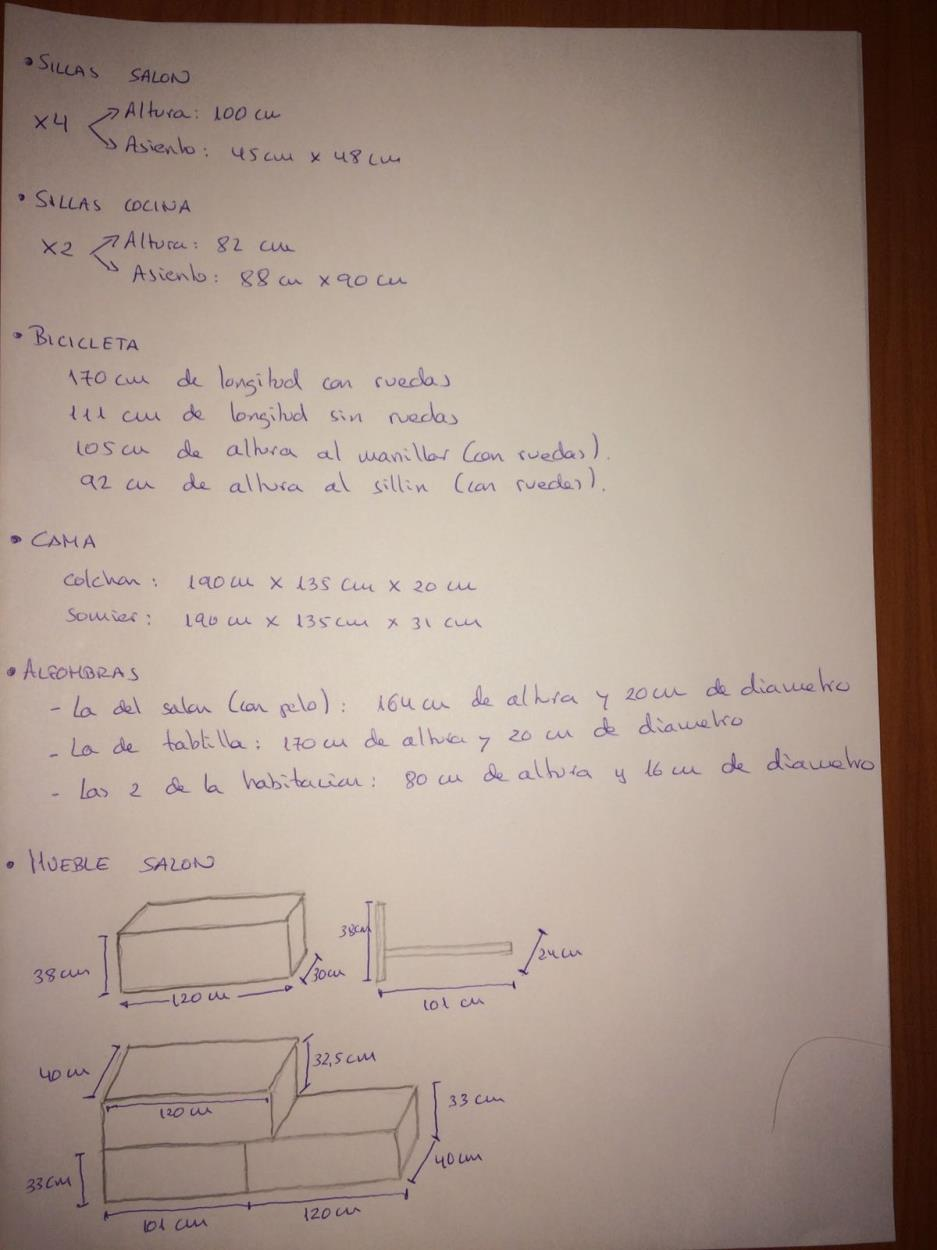 • SILLAS SALON
x4 Altura: 100 cm
Asiento: 45cm x 48cm
• SILLAS COCINA
x2 Altura: 82 cm
Asiento: 88 cm x 90 cm
• BICICLETA
170 cm de longitud con ruedas
111 cm de longitud sin ruedas
105 cm de altura al manillar (con ruedas).
92 cm de altura al sillin (con ruedas).
• CAMA
Colchon: 190 cm x 135 cm x 20 cm
Somier: 190 cm x 135 cm x 31 cm
• ALFOMBRAS
- La del salon (con pelo): 164 cm de altura y 20 cm de diametro
- La de tablilla: 170 cm de altura y 20 cm de diametro
- Las 2 de la habitacion: 80 cm de altura y 16 cm de diametro
• MUEBLE SALON
38 cm
120 cm
30cm
38cm
101 cm
24cm
40 cm
120 cm
32,5 cm
33 cm
40 cm
33 cm
101 cm
120 cm